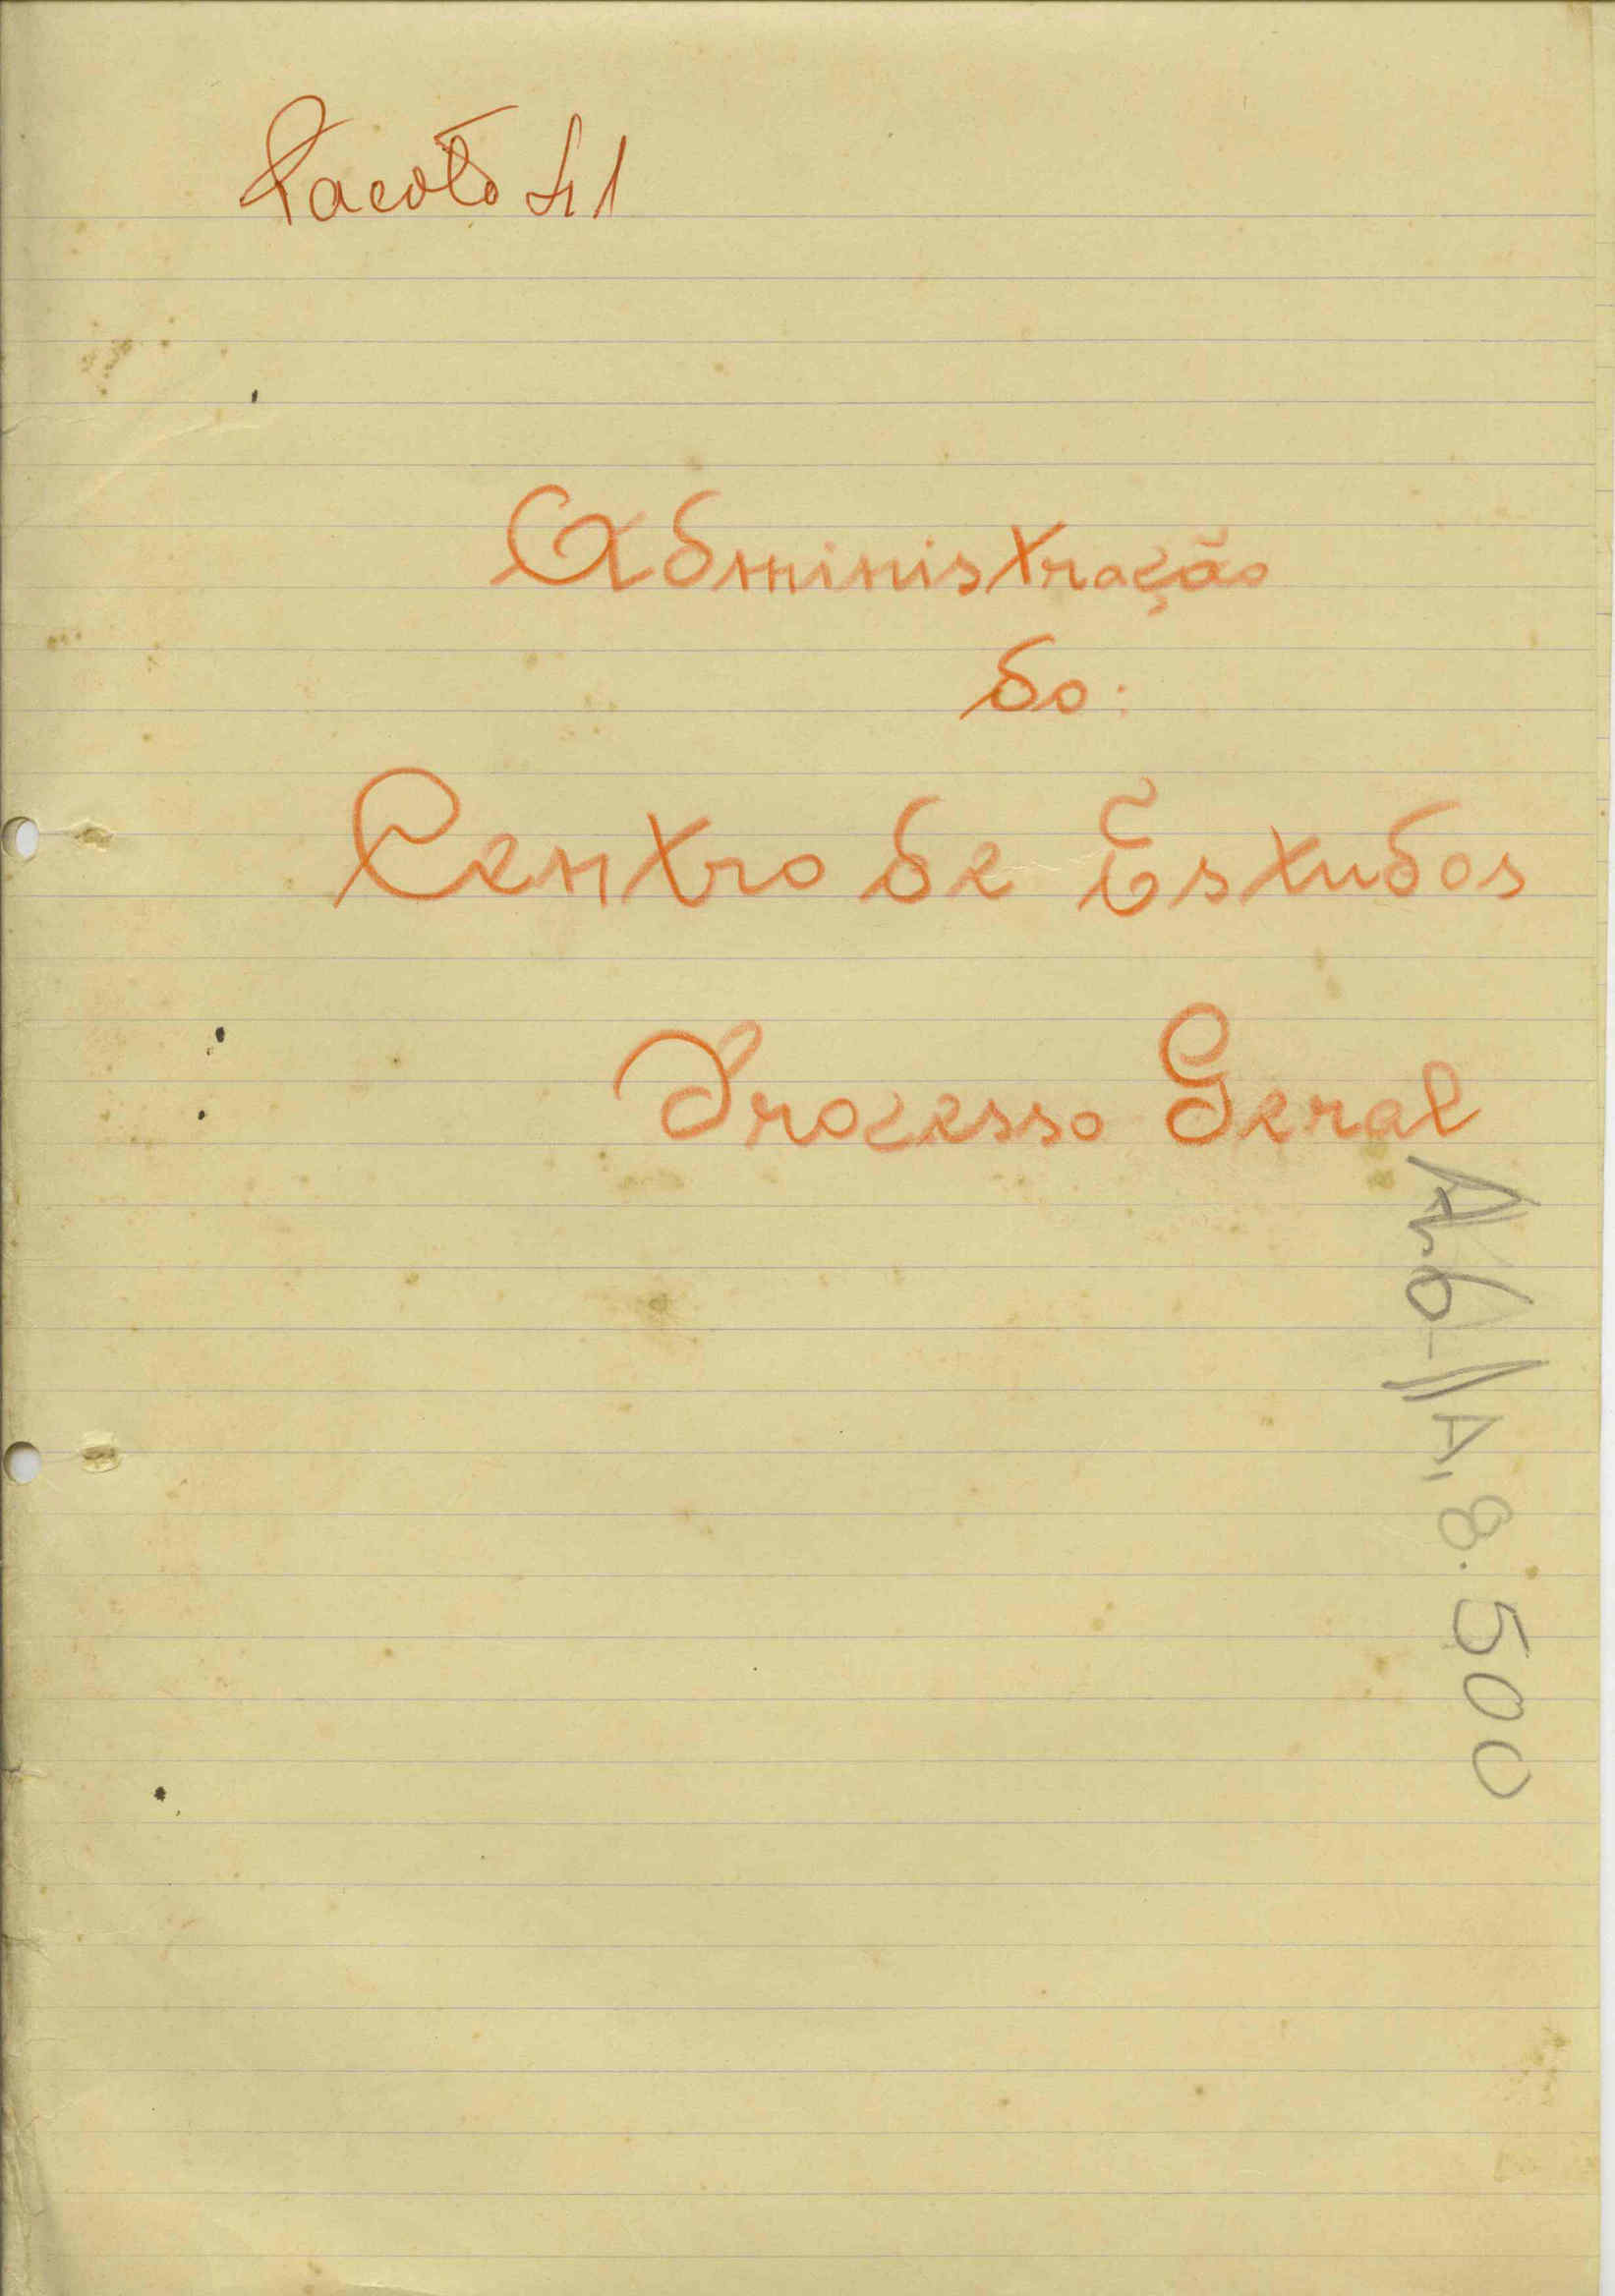 Pacote 41
Administração
do:
Centro de Estudos
Processo Geral
A.8.500